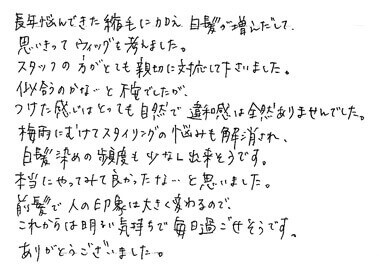 長年悩んできた縮毛に加え 白髪が増えだして、
思いきってウィッグを考えました。
スタッフの方がとても親切に対応して下さいました。
似合うのかな…と不安でしたが、
つけた感じはとっても自然で 違和感は全然ありませんでした。
梅雨にむけてスタイリングの悩みも解消され、
白髪染めの頻度も少なく出来そうです。
本当にやってみて良かったな…と思いました。
前髪で人の印象は大きく変わるので、
これからは明るい気持ちで毎日過ごせそうです。
ありがとうございました。